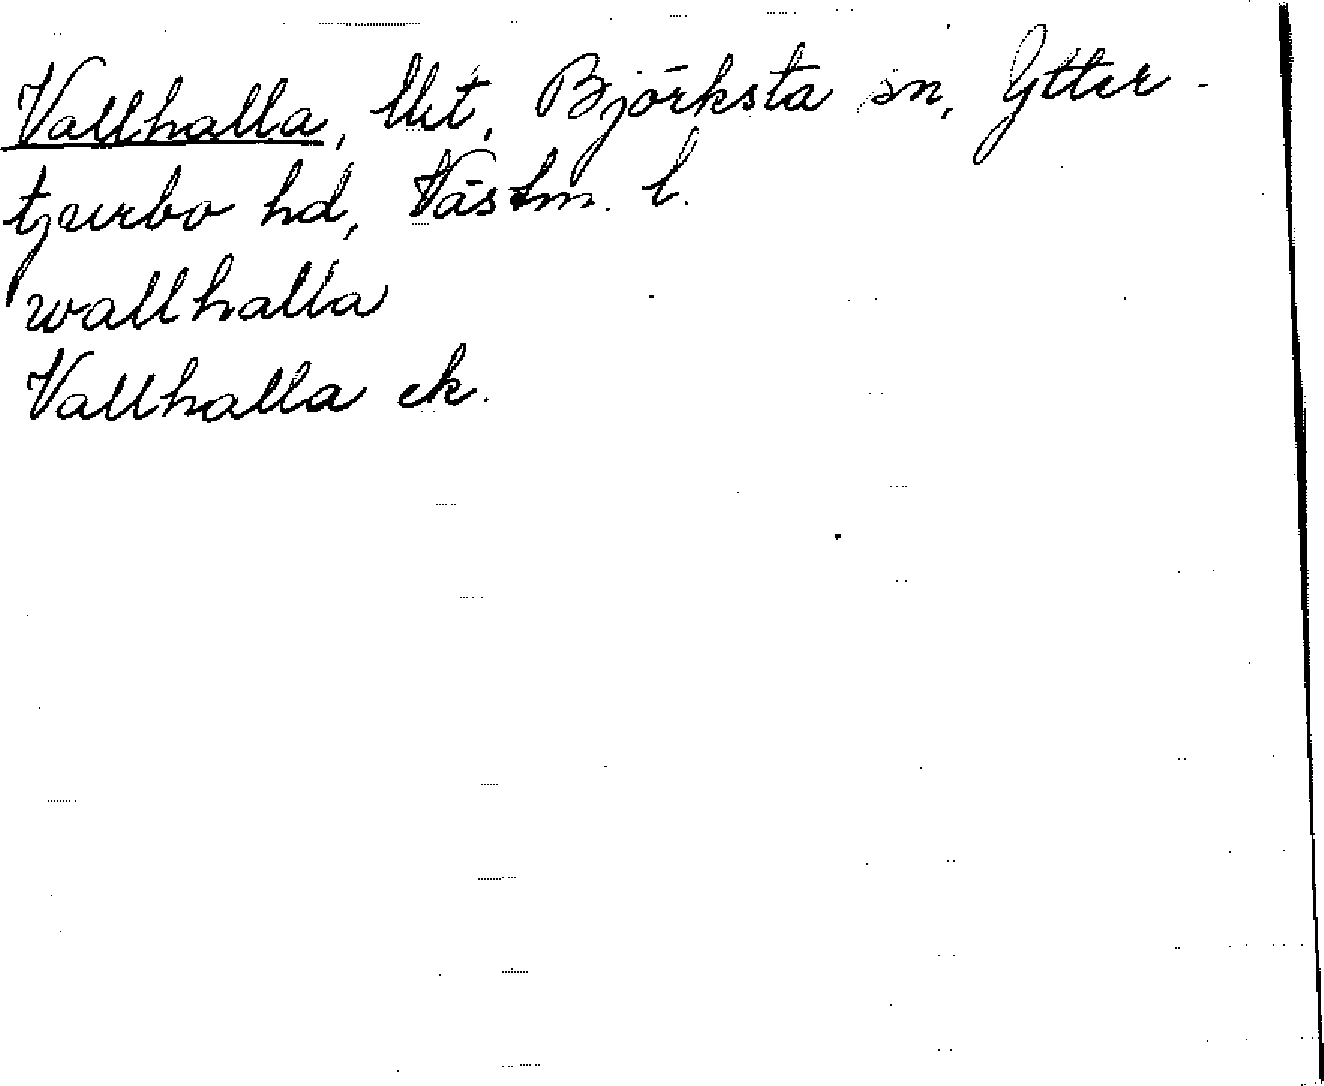 Vallhalla, lht, Björksta sn, Ytter-
tjurbo hd, Västm. l.
wallhalla
Vallhalla ek.